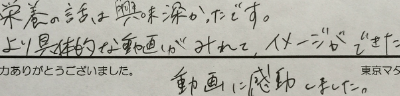 栄養の話は興味深かったです。
より具体的な動画がみれて、イメージができた
力ありがとうございました。
東京マタ
動画に感動しました。